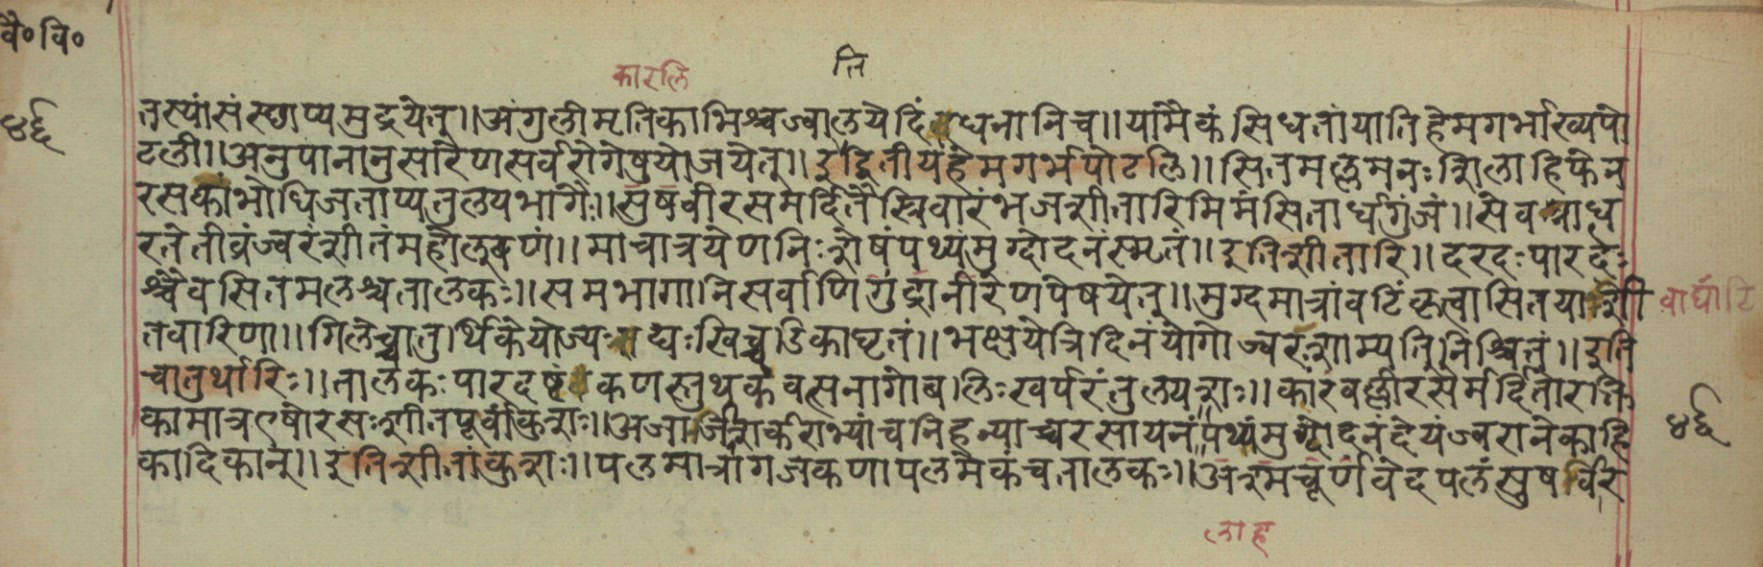 वै॰ वि॰
कारलि
ति
४६
तस्यां संस्थाप्य मुद्रयेत्॥ अंगुली मृतिकाभिश्च ज्वालयेदिंधनानि च॥ यामैकं सिधतां याति हेमगर्भाख्यपो
टली॥ अनुपानानुसारेण सर्वरोगेषु योजयेत्॥ इद्वितीयहेमगर्भपोटलि॥ सितमल्लमनःशिलाहिफेन
रसकांभोधिजताप्यतुलयभागैः॥ सुषवीरसमर्दितैस्त्रिवारं भज शीतारिमिमं सितार्धगुंजं॥ सेव
रते तीव्रं ज्वरं शीतं महोलुवणं॥ मात्रात्रयेण निःशेषं पथ्यं मुग्दोदनं स्मृतं॥ इति शीतारि॥ दरदः पारदः
श्चैव सितमलश्च तालकः॥ समभागानि सर्वाणि गुंद्रानीरेण पेषयेत्॥ मुग्दमात्रां वटिं कृत्वा सितया शी
वाघांटि
तवारिणा॥ गिलेच्चातुर्थिके योज्यः पद्यः खिचडिका घृतं॥ भक्षये त्रिदिनं योगो ज्वरः शाम्यति निश्चितं॥ इति
चातुर्थारिः॥ तालकः पारद कणस्तुथकं वत्सनागो बलिः खर्परं तुलयशः॥ कारवल्लीरसैर्मर्दितो रक्ति
कामात्र एषो रसः शीतपूर्वांकुशः॥ अजाजीशर्कराभ्यां च निहन्याच्च रसायनं पथ्यं मुग्दोदनं देयं ज्वरानेकाहि
४६
कादिकान्॥ इति शीतांकुशः॥ पलमात्रा गजकणा पलमेकं च तालकः॥ अश्मचूर्णं वेदपलं सुषविर